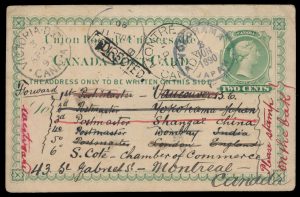 UNION POSTALE UNIVERSELLE
CANADA POST CARD
THE ADDRESS ONLY TO BE WRITTEN ON THIS SIDE
TWO CENTS
VICTORIA B.C.
CANADA
MONTREAL
CANADA
YOKOHAMA
1890
JAPAN
Forward 1st Postmaster Vancouver B.C.
2d Postmaster Yokohama Japan
3d Postmaster Shangai China
4o Postmaster Bombay India
5o Postmaster London England
6 S. Coté - Chamber of Commerce
43 St Gabriel St - Montreal -
Canada
Please stamp
on the back